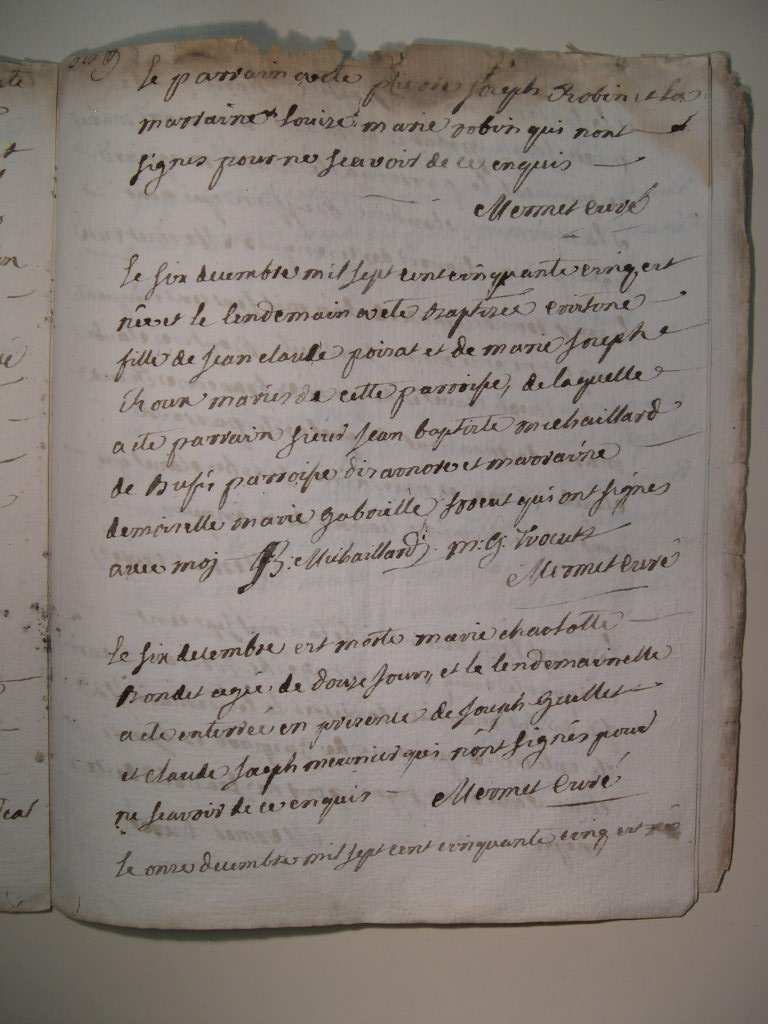 le parrain a ete pierre Joseph Robin et la
marraine Louise marie robin qui n'ont
signés pour ne scavoir de ce enquis
Mermet Curé
le six decembre mil sept cent cinquante cinq est
née et le lendemain a ete baptisée
fille de Jean claude poirat et de marie Joseph
Roux mariés de cette parroisse, de laquelle
a ete parrain sieur Jean baptiste michaillard
de parroisse et marraine
demoiselle marie gabrielle qui ont signés
avec moj B: Michaillard m: G:
Mermet Curé
le six decembre est morte marie charlotte
Rondet agée de douze jours, et le lendemain elle
a ete enterrée en presence de Joseph Guillet
et claude Joseph meunier qui n'ont signés pour
ne scavoir de ce enquis Mermet Curé
le onze decembre mil sept cent cinquante cinq est né